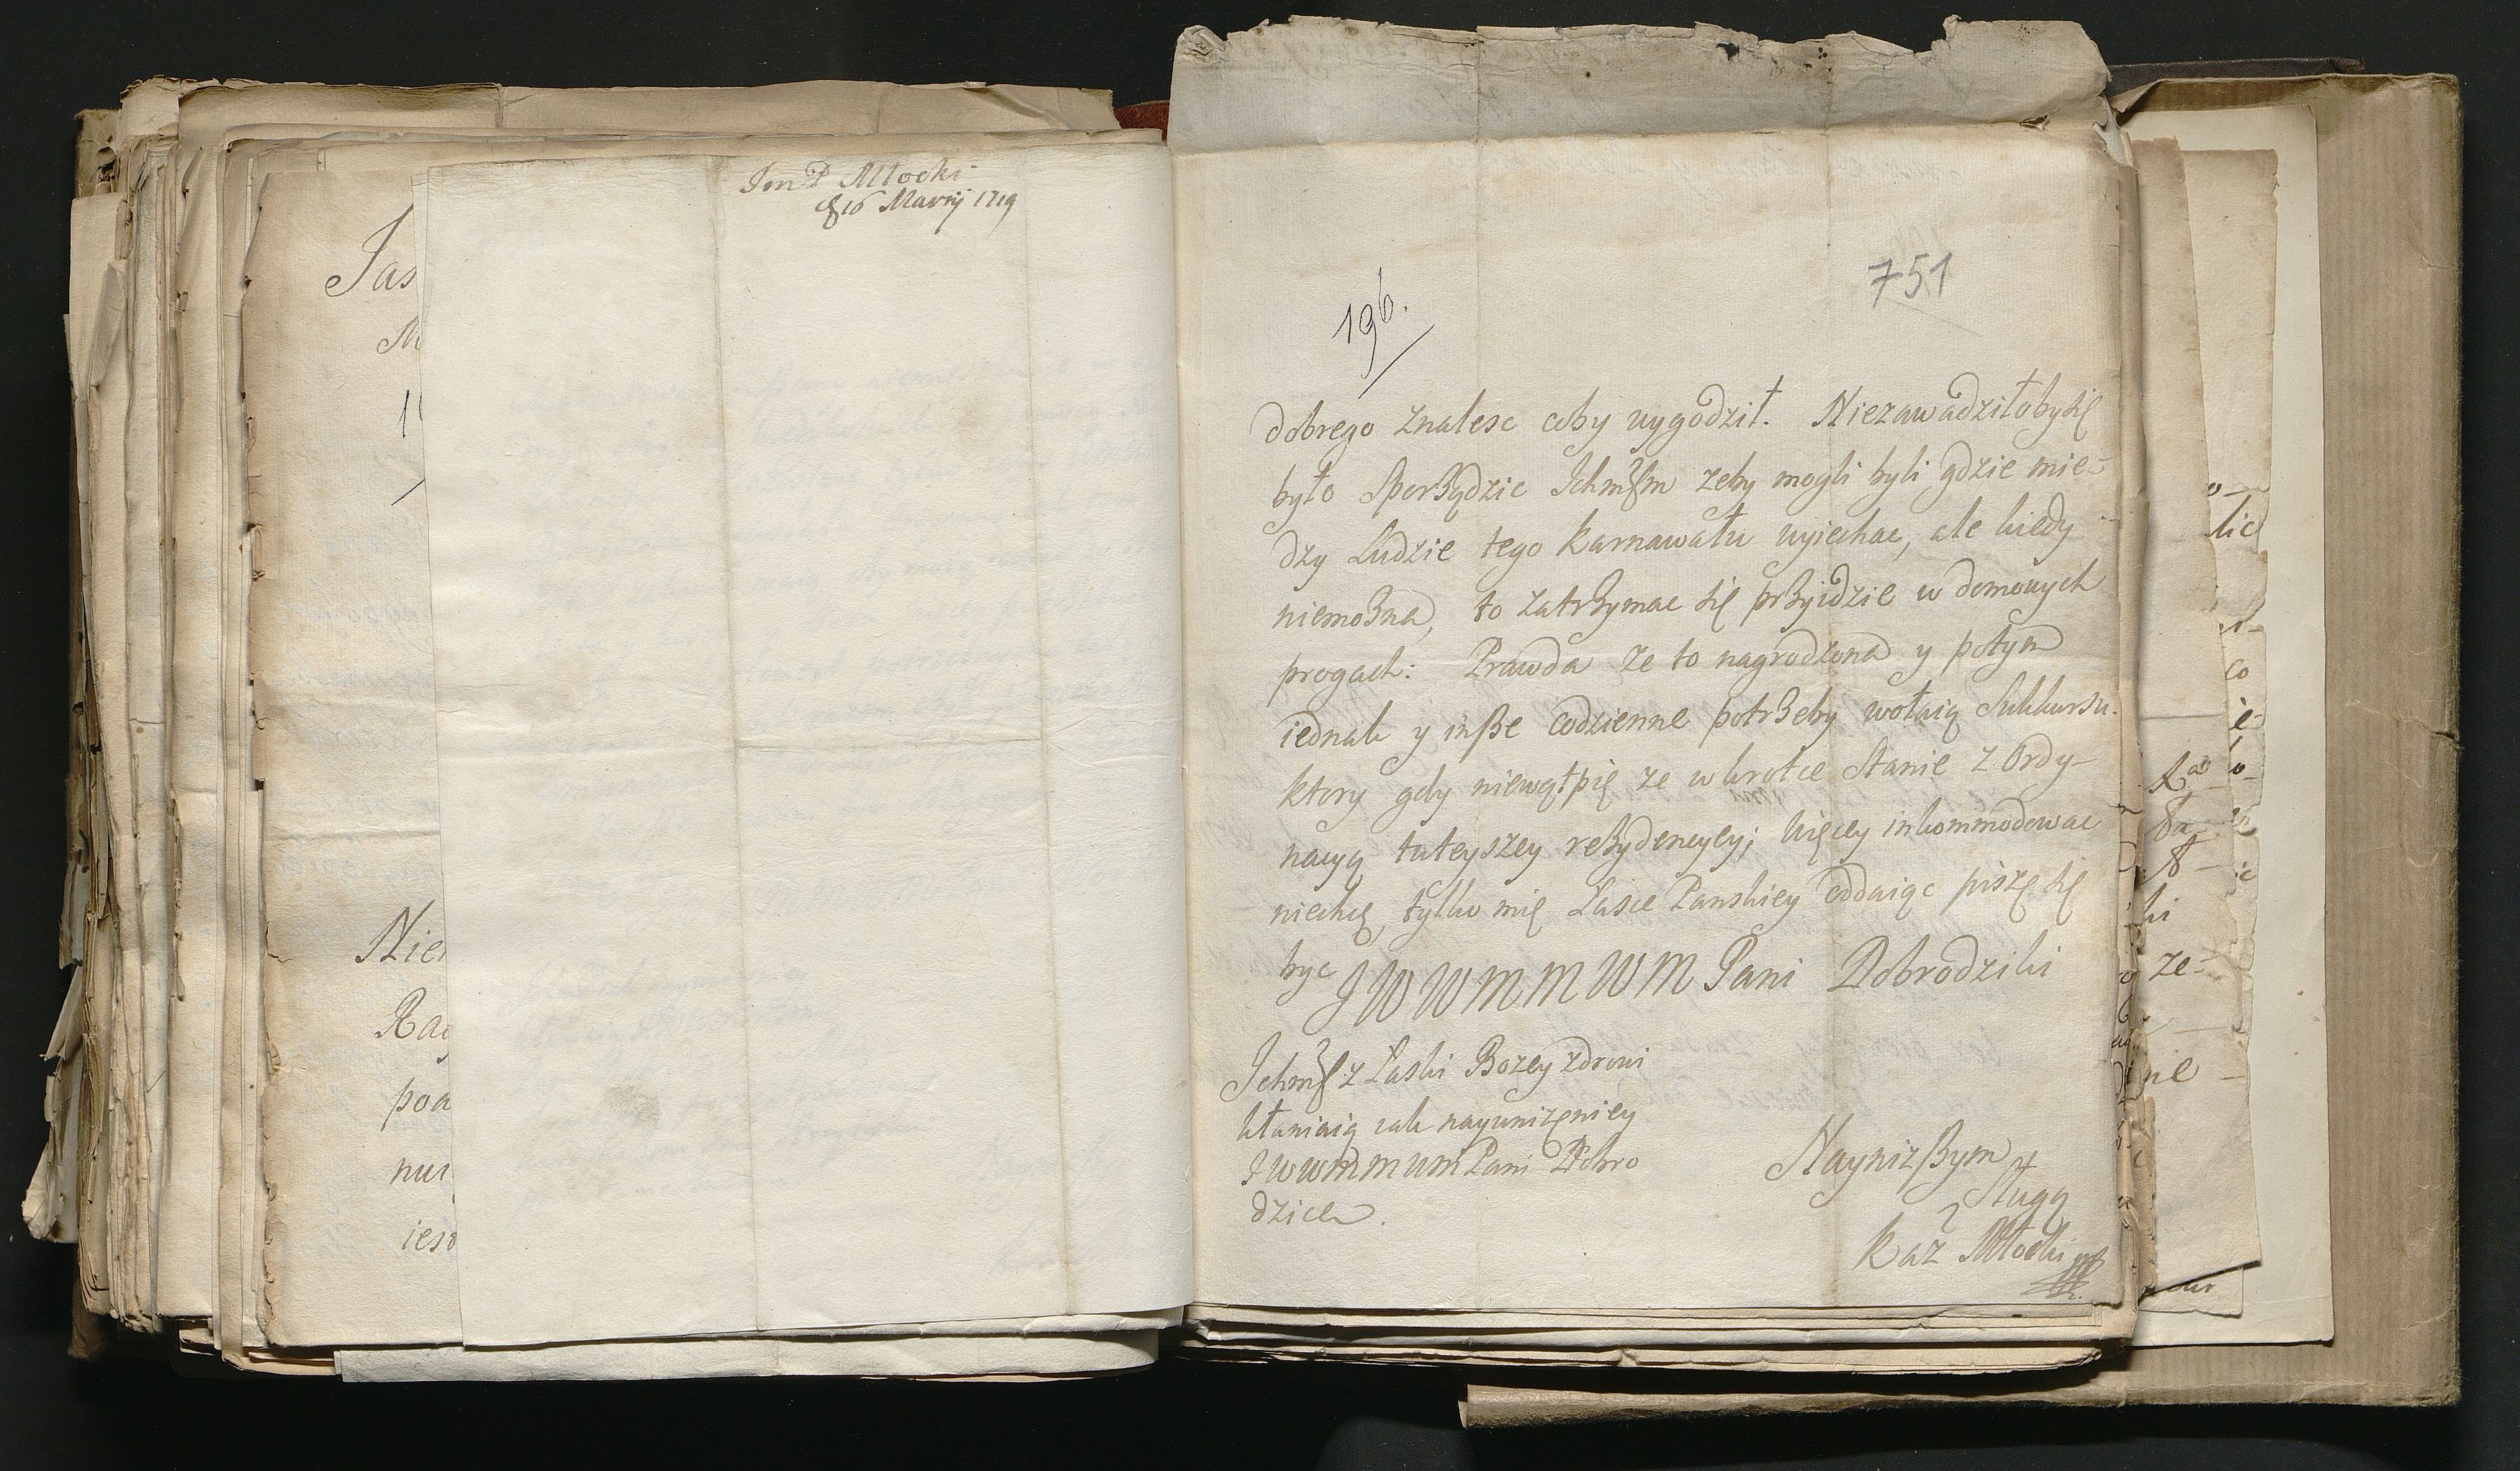 Jas
M
Nie
Ra
poa
nui
ies
Im P Młocki
16 Martij 1719
196.
751
dobrego znalesc coby wygodził. Niezawadziłobysię
było Sporządzic Ichm zeby mogli byli gdzie mie-
dzy Ludzie tego karnawału wyiechac, ale kiedy
niemozna, to zatrzymac się przyidzie w domowych
progach: Prawda ze to nagrodzona y potym
iednak y inße codzienne potrzeby wołaią Sukkursu.
ktory gdy niewątpię ze wkrotce Stanie z Ordy-
nacyą tuteyszey rezydencyey; więcey inkommodowac
niechcę, tylko mię Łasce Panskiey oddaiąc piszę się
byc J W W M M W M Pani Dobrodziki
Ichm z Łaski Bozey zdrowi
kłaniaią iak nayunizeniey
J W W M M W M Pani Dobro
dzice.
Naynizßym
Sługą
Kaz Młocki
lic
co
ie-
ki
ze-
nie